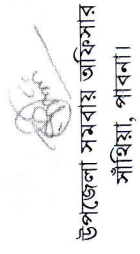 উপজেলা সমবায় অফিসার
সাঁথিয়া, পাবনা।